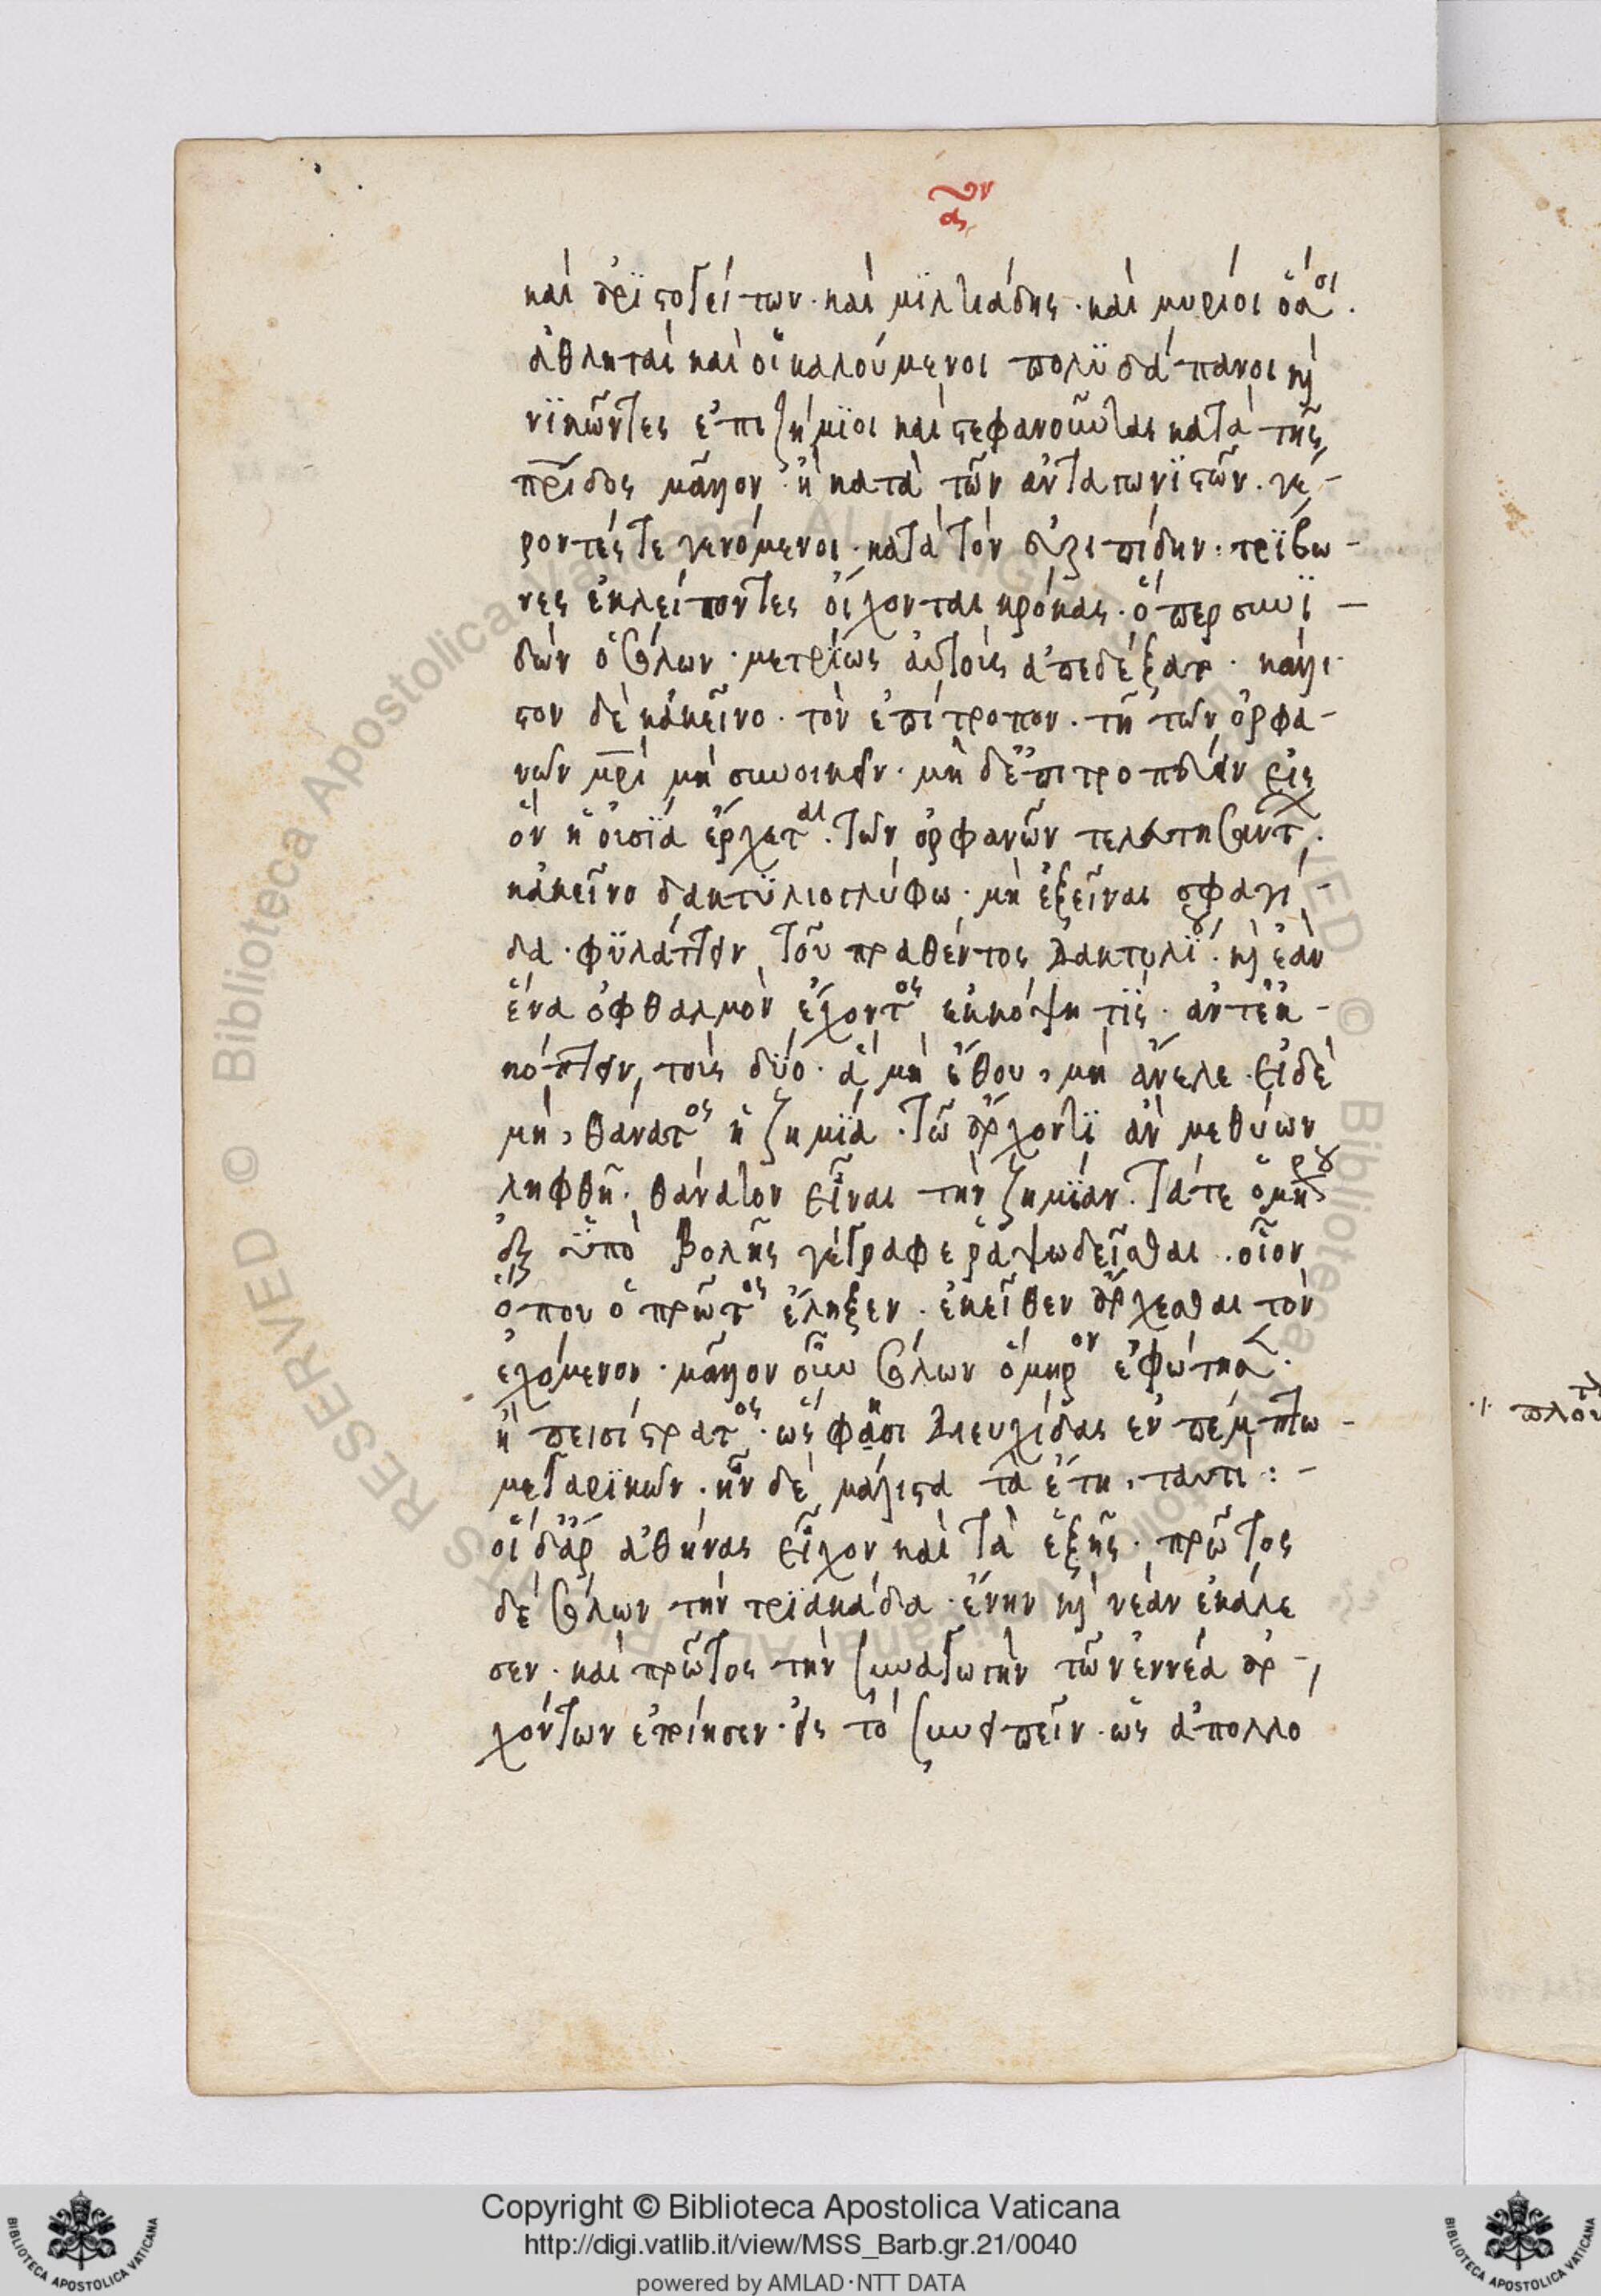 καὶ ἀρϊστογείτων· καὶ μϊλτιάδης· καὶ μυρίοι ὅσοι·
ἀθληταὶ καὶ οἱ καλούμενοι πολϋδάπανοι καὶ
νϊκῶντες ἐπιζήμϊοι καὶ στεφανοῦνται κατὰ τῆς
πρίδος μᾶλλον· ἢ κατὰ τῶν ἀνταγωνϊστῶν· γέ-
ροντές τε γενόμενοι· κατὰ τὸν εὐριπίδην· τρϊβω-
νες ἐκλείποντες οἴχονται κρόκας· ὅπερ συνϊ-
δὼν ὁ σόλων· μετρίως αὐτοὺς ἀπεδέξατο· κάλλι
στον δὲ κἀκεῖνο· τὸν ἐπίτροπον· τῆ τῶν ὀρφα-
νῶν μρὶ μὴ συνοικεῖν· μὴ δ' ἐπιτροπεύειν εἰς
ὃν ἡ οὐσϊα ἔρχεται· τῶν ὀρφανῶν τελευτησάντ·
κἀκεῖνο δακτϋλιογλύφω· μὴ ἐξεῖναι σφραγί-
δα· φϋλάττειν τοῦ πραθέντος δακτυλΐου· καὶ ἐὰν
ἕνα ὀφθαλμὸν ἔχοντος ἐκκόψη τὶς· ἀντεκ-
κόπτειν τοὺς δύο· ἃ μὴ ἔθου, μὴ ἀνέλε· εἰδὲ
μή, θάνατος ἡ ζημϊα· τῶ ἄρχοντϊ ἂν μεθύων
ληφθῆ· θάνατον εἶναι τὴν ζημϊαν· τάτε ὁμήρου
ἐξ ὑπὸ βολῆς γέγραφε ῥαψωδεῖσθαι· οἷον
ὅπου ὁ πρῶτος ἔληξεν· ἐκεῖθεν ἄρχεσθαι τὸν
ἐχόμενον· μᾶλλον οὖν σόλων ὅμηρον ἐφώτισεν·
ἢ πεισίστρατος· ὥς φησι διευχίδας ἐν πέμπτω
μεγαρϊκῶν· ἦν δὲ μάλιστα τὰ ἔπη, ταυτί:-
οἱ δ' ἄρ' ἀθήνας εἶχον καὶ τὰ ἑξῆς· πρῶτος
δὲ σόλων τὴν τρϊακάδα· ἔνην καὶ νέαν ἐκάλε
σεν· καὶ πρῶτος τὴν συναγωγὴν τῶν ἐννέα ἀρ-
χόντων ἐποίησεν· εἰς τὸ συνειπεῖν· ὡς ἀπολλο
Copyright © Biblioteca Apostolica Vaticana
http://digi.vatlib.it/view/MSS_Barb.gr.21/0040
powered by AMLAD·NTT DATA